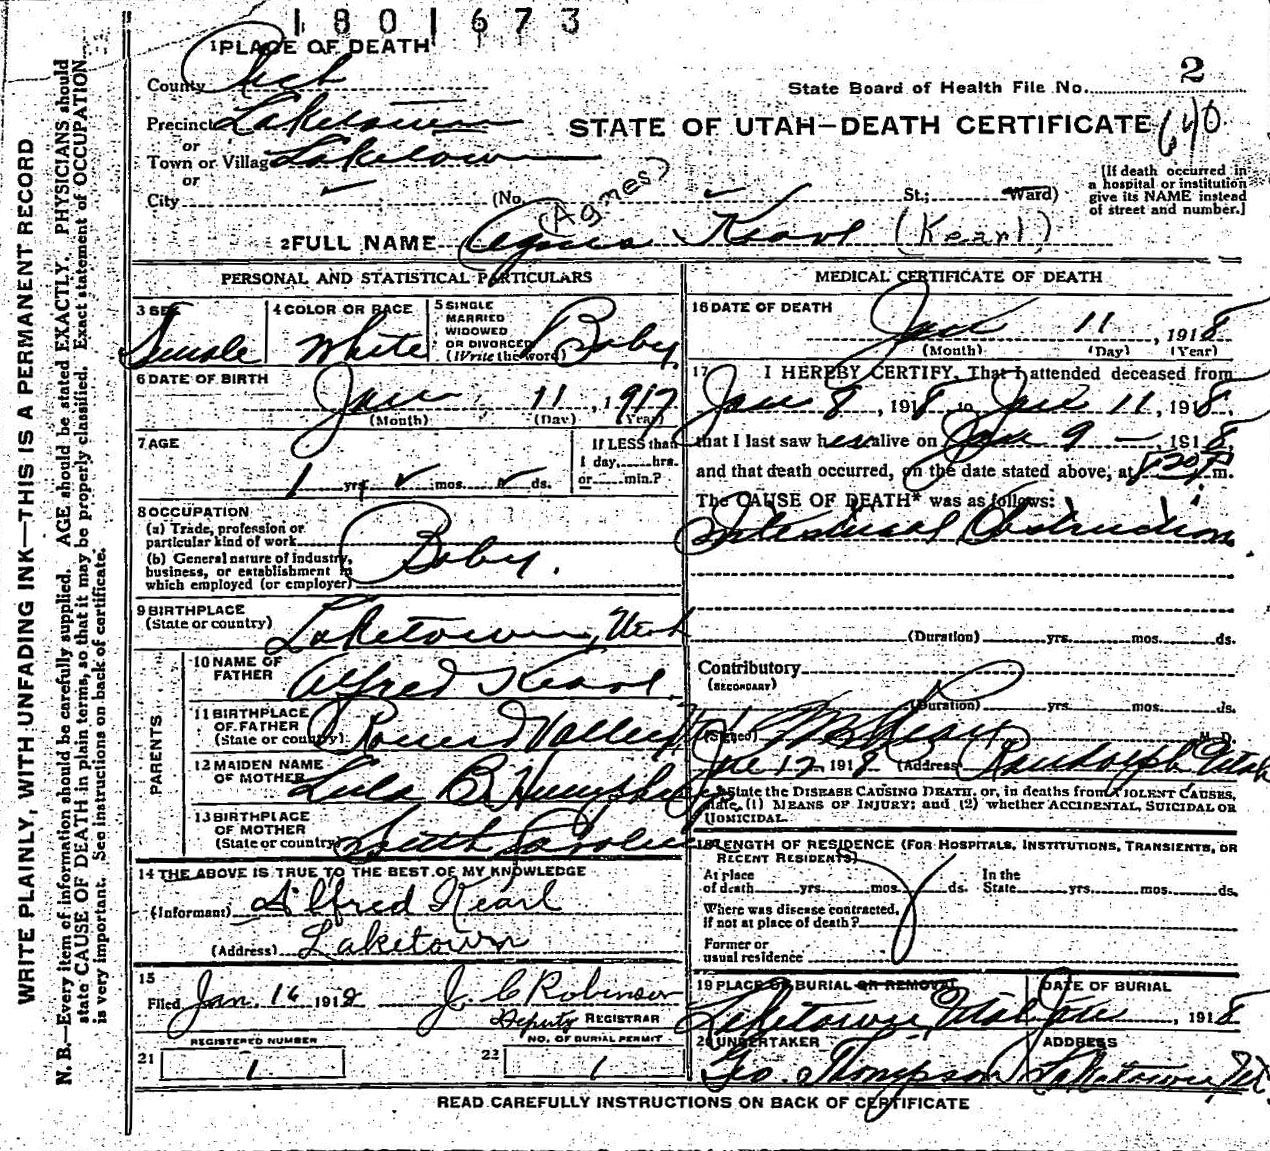 1801673
1 PLACE OF DEATH
County Rich
State Board of Health File No. 2
Precinct Laketown
STATE OF UTAH—DEATH CERTIFICATE 640
or
Town or Village Laketown
or
City (No. St.; Ward)
[If death occurred in
a hospital or institution
give its NAME instead
of street and number.]
(Agnes)
2 FULL NAME Kearl (Kearl)
PERSONAL AND STATISTICAL PARTICULARS
3 SEX
Female
4 COLOR OR RACE
White
5 SINGLE
MARRIED
WIDOWED
OR DIVORCED
(Write the word) Baby
6 DATE OF BIRTH
Jan 11, 1917
(Month) (Day) (Year)
7 AGE
1 yrs. mos. ds.
If LESS than
1 day, hrs.
or min.?
8 OCCUPATION
(a) Trade, profession or
particular kind of work
(b) General nature of industry,
business, or establishment in
which employed (or employer)
Baby.
9 BIRTHPLACE
(State or country)
Laketown, Utah
PARENTS
10 NAME OF
FATHER
Alfred Kearl.
11 BIRTHPLACE
OF FATHER
(State or country)
Round Valley
12 MAIDEN NAME
OF MOTHER
Lula B. Humphreys
13 BIRTHPLACE
OF MOTHER
(State or country)
South Carolina
14 THE ABOVE IS TRUE TO THE BEST OF MY KNOWLEDGE
(Informant) Alfred Kearl
(Address) Laketown
15
Filed Jan. 16 1918 J. C Robinson
Deputy REGISTRAR
21 REGISTERED NUMBER
1
22 NO. OF BURIAL PERMIT
1
MEDICAL CERTIFICATE OF DEATH
16 DATE OF DEATH
Jan 11, 1918
(Month) (Day) (Year)
17 I HEREBY CERTIFY, That I attended deceased from
Jan 8, 1918 to Jan 11, 1918,
that I last saw her alive on Jan 9 — 1918
and that death occurred, on the date stated above, at m.
The CAUSE OF DEATH* was as follows:
Intestinal Obstruction.
(Duration) yrs. mos. ds.
Contributory
(SECONDARY)
(Duration) yrs. mos. ds.
(Signed) M.D.
Jan 12 1918 (Address) Randolph Utah
*State the DISEASE CAUSING DEATH, or, in deaths from VIOLENT CAUSES,
state (1) MEANS OF INJURY; and (2) whether ACCIDENTAL, SUICIDAL OR
HOMICIDAL.
18 LENGTH OF RESIDENCE (FOR HOSPITALS, INSTITUTIONS, TRANSIENTS, OR
RECENT RESIDENTS)
At place
of death yrs. mos. ds.
In the
State yrs. mos. ds.
Where was disease contracted,
if not at place of death?
Former or
usual residence
19 PLACE OF BURIAL OR REMOVAL
Laketown Utah
DATE OF BURIAL
Jan , 1918
20 UNDERTAKER
Geo. Thompson
ADDRESS
Laketown, Ut.
READ CAREFULLY INSTRUCTIONS ON BACK OF CERTIFICATE
WRITE PLAINLY, WITH UNFADING INK—THIS IS A PERMANENT RECORD
N. B.—Every item of information should be carefully supplied. AGE should be stated EXACTLY. PHYSICIANS should
state CAUSE OF DEATH in plain terms, so that it may be properly classified. Exact statement of OCCUPATION
is very important. See instructions on back of certificate.